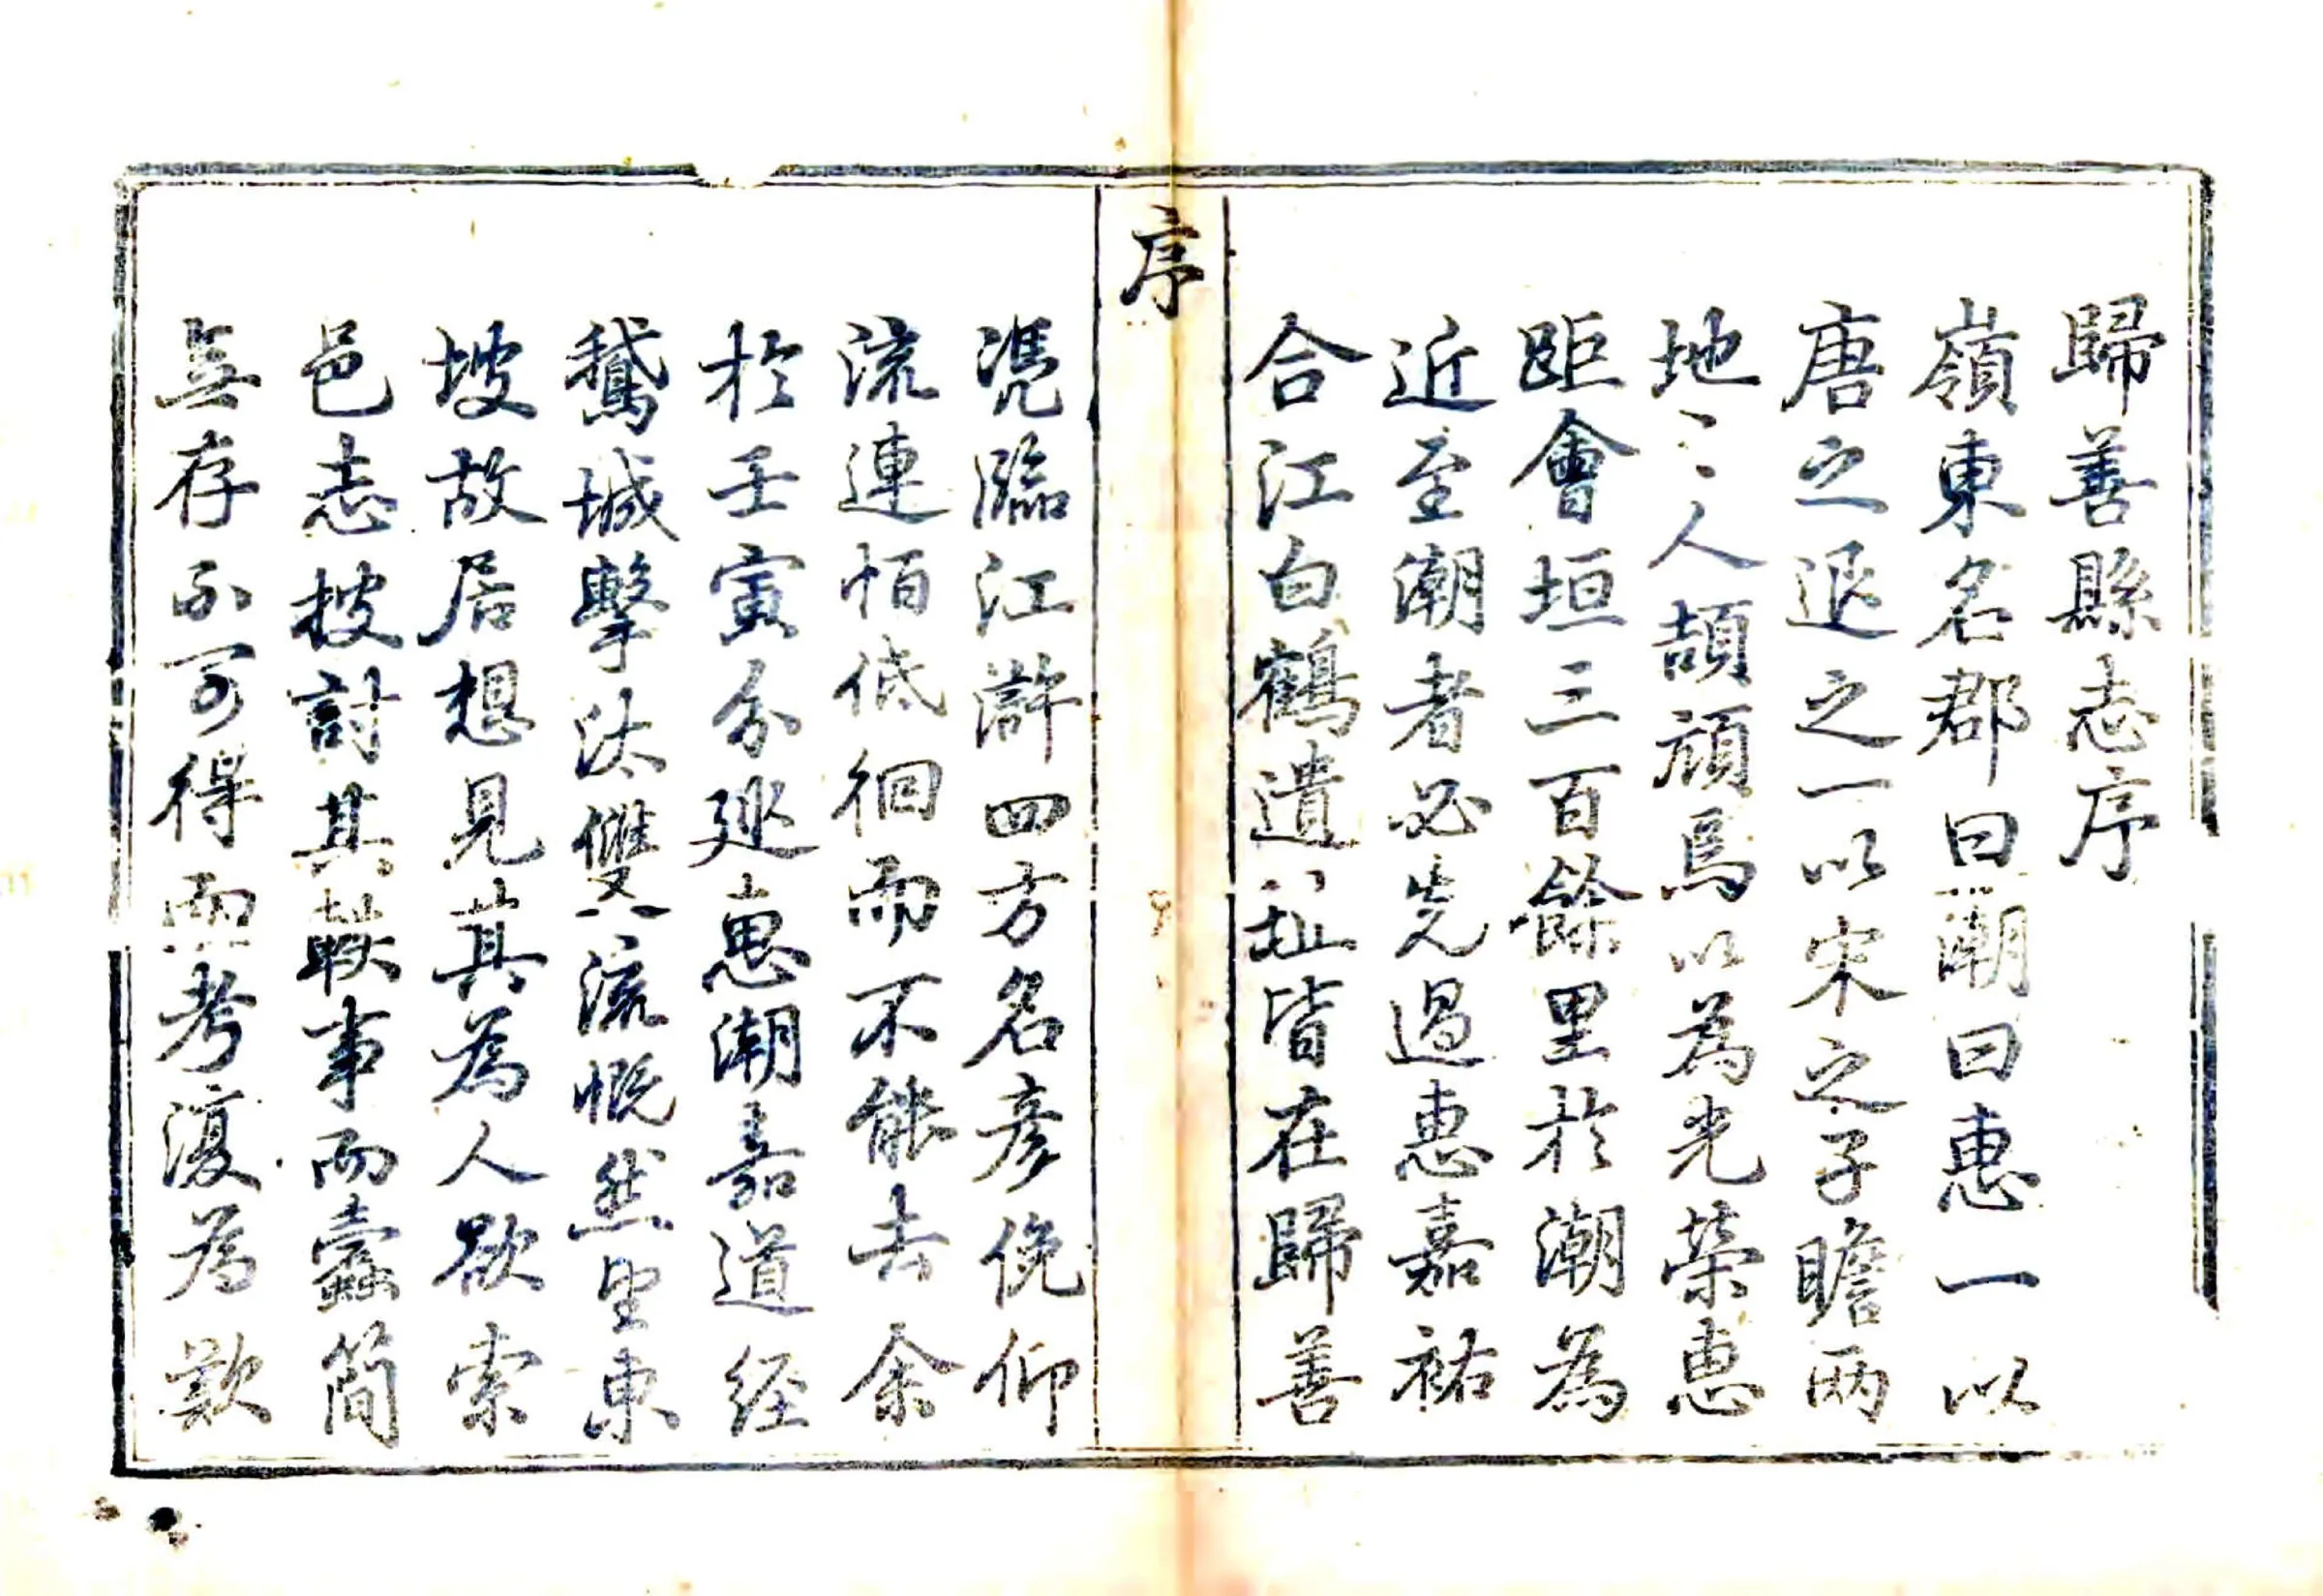 歸善縣志序
嶺東名郡曰潮曰惠一以
唐之退之一以宋之子瞻两
地〻人頡頏焉以為光榮惠
距會垣三百餘里於潮為
近至潮者必先過惠嘉祐
合江白鶴遺址皆在歸善
序
凴臨江滸四方名彦俛仰
流連怕低徊而不能去余
於壬寅分廵惠潮嘉道経
鵝城擊汰雙流慨然望東
坡故居想見其為人欲索
邑志披討其軼事而蠹簡
無存不可得而考渡為歎